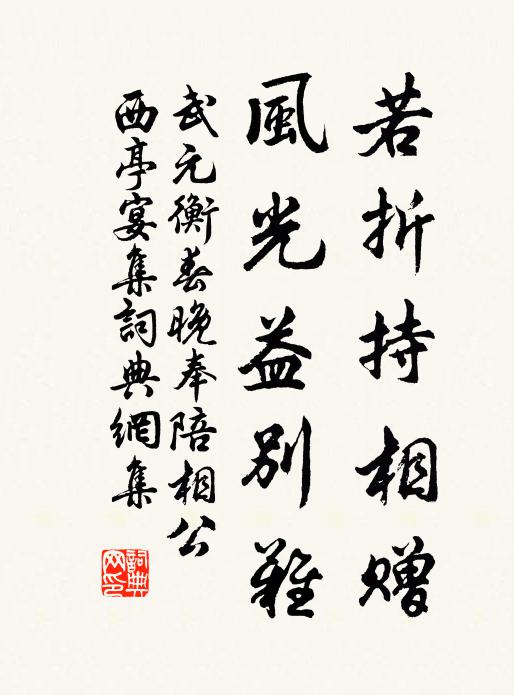 若折持相赠
風光益别難
武元衡春晚奉陪相公
西亭宴集詞典網集
詞典
网印